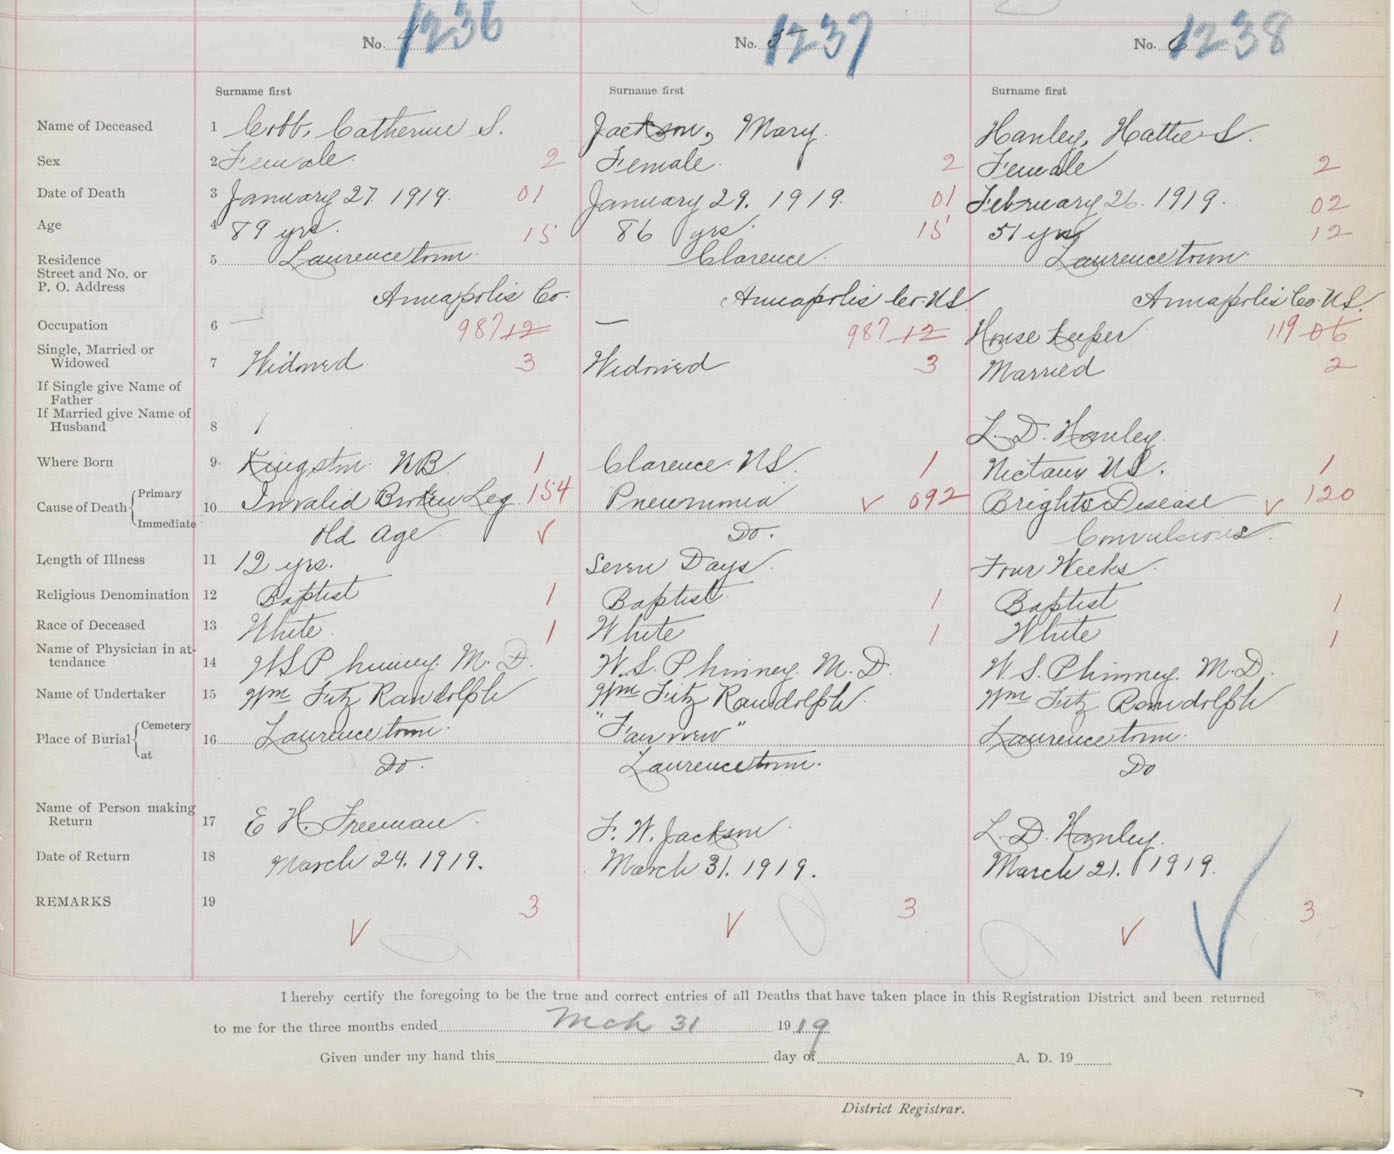 No. 4 1236 No. 5 1237 No. 6 1238
Surname first Surname first Surname first
Name of Deceased 1 Cobb, Catherine S. Jackson, Mary. Hanley, Hattie S.
Sex 2 Female. 2 Female. 2 Female 2
Date of Death 3 January 27. 1919. 01 January 29. 1919. 01 February 26. 1919. 02
Age 4 89 yrs. 15 86 yrs. 15 51 yrs 12
Residence 5 Laurencetown. Clarence. Laurencetown.
Street and No. or
P. O. Address Annapolis Co. Annapolis Co. NS Annapolis Co. NS.
Occupation 6 — 987 12 — 987 12 House Keeper 119 06
Single, Married or
Widowed 7 Widowed 3 Widowed 3 Married 2
If Single give Name of
Father
If Married give Name of
Husband 8 L. D. Hanley.
Where Born 9 Kingston. NB. 1 Clarence. NS. 1 Nictaux NS. 1
Cause of Death Primary 10 Invalid Broken Leg. 154 Pneumonia ✓ 092 Brights Disease ✓ 120
Immediate Old Age ✓ Do. Convulsions.
Length of Illness 11 12 yrs. Seven Days. Four Weeks.
Religious Denomination 12 Baptist 1 Baptist 1 Baptist 1
Race of Deceased 13 White. 1 White 1 White 1
Name of Physician in at-
tendance 14 W S Phinney. M. D. W. S. Phinney. M. D. W. S. Phinney. M. D.
Name of Undertaker 15 Wm Fitz Randolph Wm Fitz Randolph. Wm Fitz Randolph
Place of Burial Cemetery 16 Laurencetown. "Fairview" Laurencetown.
at Do. Laurencetown. Do
Name of Person making
Return 17 E H. Freeman. F. W. Jackson. L. D. Hanley.
Date of Return 18 March 24. 1919. March 31. 1919. March 21. 1919.
REMARKS 19 3 3 3
✓ ✓ ✓ ✓
I hereby certify the foregoing to be the true and correct entries of all Deaths that have taken place in this Registration District and been returned
to me for the three months ended Mch 31 1919
Given under my hand this day of A. D. 19
District Registrar.